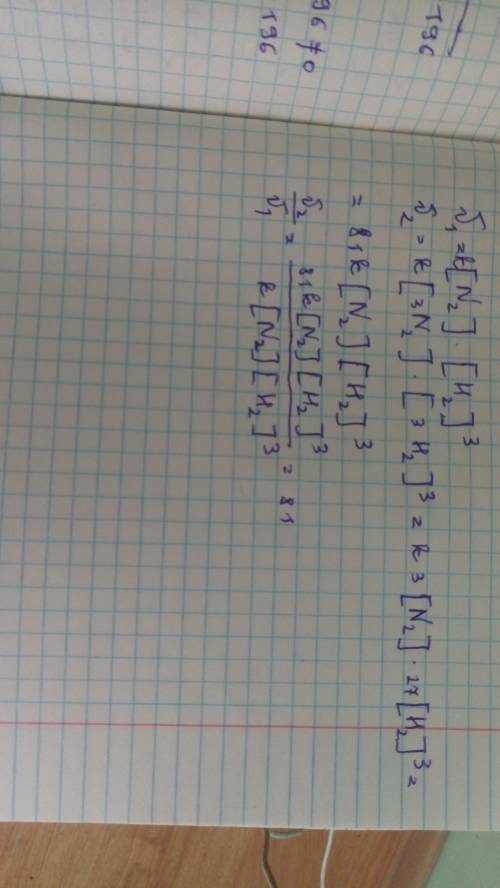 196
96 70
196
v₁ = k[N₂] · [H₂]³
v₂ = k[3N₂] · [3H₂]³ = k 3[N₂] · 27[H₂]³ =
= 81k[N₂][H₂]³
v₂/v₁ = 81k[N₂][H₂]³ / k[N₂][H₂]³ = 81